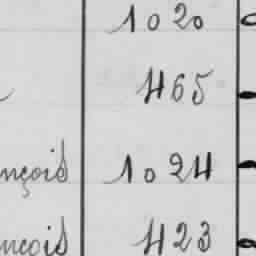 1020
465
nçois 1024
nçois 423